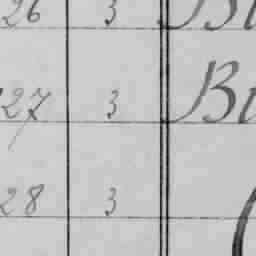 26 3 Bu
27 3 Bu
28 3